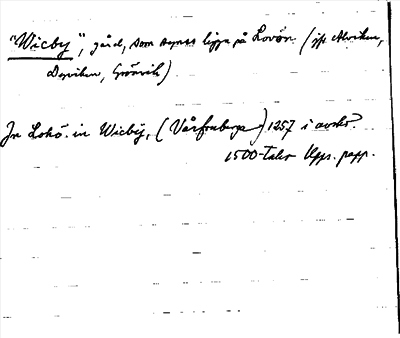 "Wicby", gård, som synes ligga på Lovön (jfr Alviken,
Depviken, Grönvik)
In Lohö. in Wicbÿ, (Vårfruberga) 1257 i avskr.
1500-talet Upps. papp.